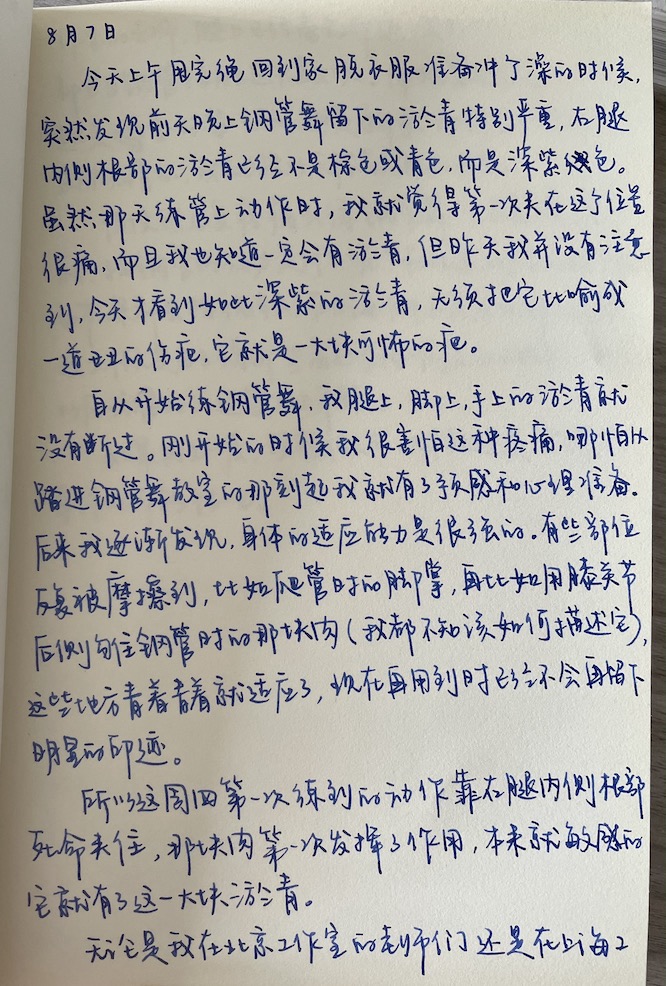 8月7日
今天上午甩完绳回到家脱衣服准备冲个澡的时候,
突然发现前天晚上钢管舞留下的淤青特别严重,右腿
内侧根部的淤青已经不是棕色或青色,而是深紫色。
虽然那天练管上动作时,我就觉得第一次夹在这个位置
很痛,而且我也知道一定会有淤青,但昨天我并没有注意
到,今天才看到如此深紫的淤青,无须把它比喻成
一道丑丑的伤疤,它就是一大块可怖的疤。
自从开始练钢管舞,我腿上,脚上,手上的淤青就
没有断过。刚开始的时候我很害怕这种疼痛,哪怕从
踏进钢管舞教室的那刻起我就有了预感和心理准备。
后来我逐渐发现,身体的适应能力是很强的。有些部位
反复被摩擦到,比如爬管时的脚掌,再比如用膝关节
后侧勾住钢管时的那块肉(我都不知该如何描述它),
这些地方青着青着就适应了,现在再用到时已经不会再留下
明显的印迹。
所以这周四第一次练到的动作靠右腿内侧根部
死命夹住,那块肉第一次发挥了作用,本来就敏感的
它就有了这一大块淤青。
无论是我在北京工作室的老师们还是在上海工